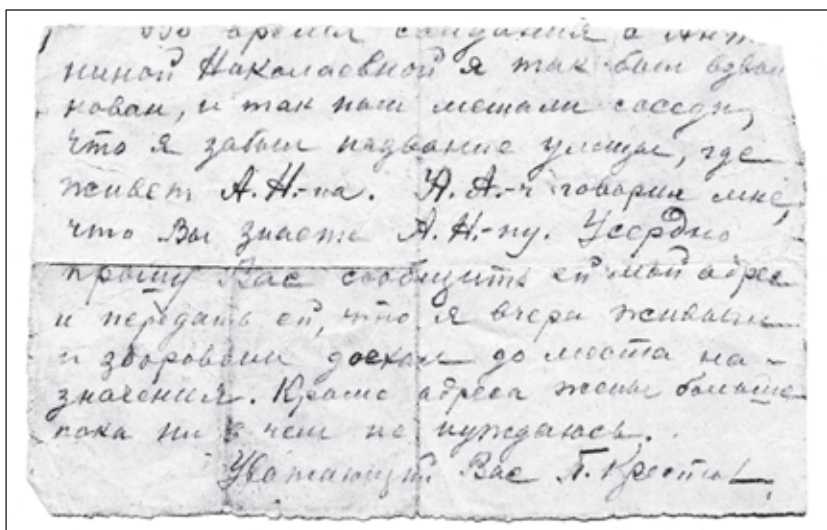 Во время свидания с Анто-
ниной Николаевной я так был взвол-
нован, и так нам мешали соседи,
что я забыл название улицы, где
живет А.Н.-на. А.А.-ч говорил мне,
что Вы знаете А.Н.-ну. Усердно
прошу Вас сообщить ей мой адрес
и передать ей, что я вчера живым
и здоровым доехал до места на-
значения. Кроме адреса жены больше
пока ни в чем не нуждаюсь.
Уважающий Вас П.